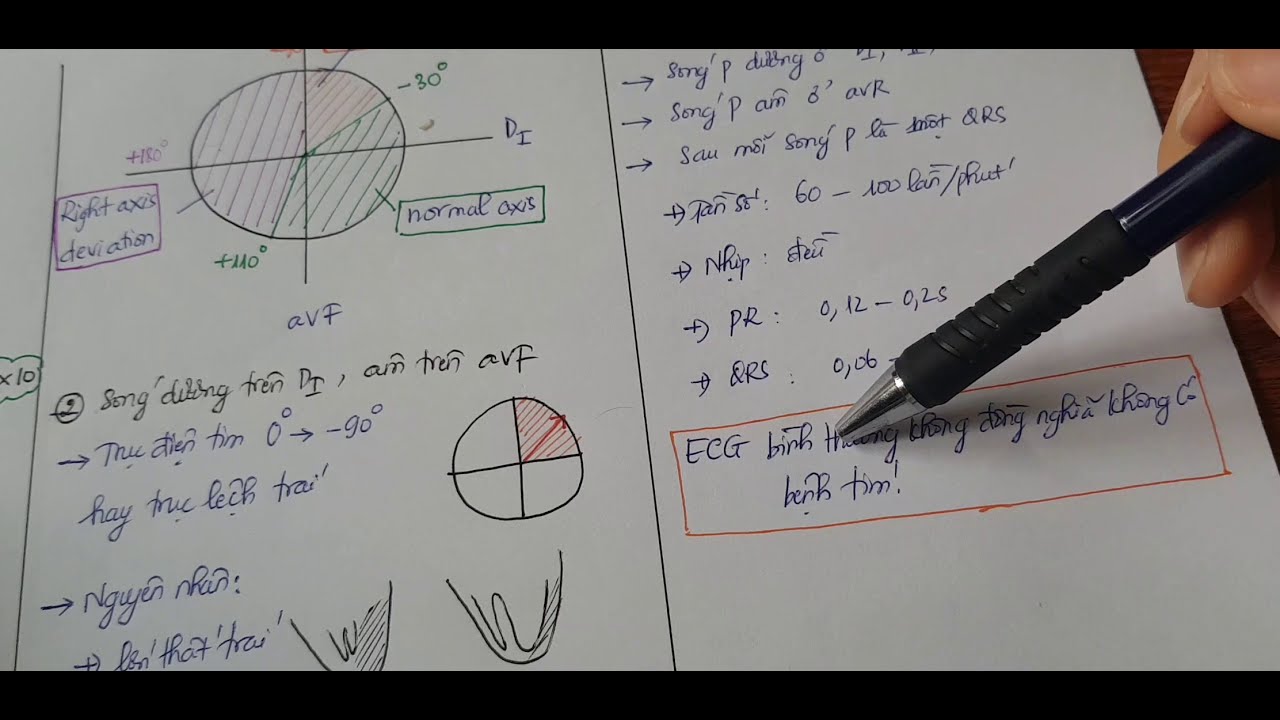 -30°
D_I
+180°
Right axis
deviation
normal axis
+110°
aVF
x10
② Sóng dương trên D_I, âm trên aVF
→ Trục điện tim 0° → -90°
hay trục lệch trái
→ Nguyên nhân:
+) lớn thất trái
→ Sóng P dương ở D_I,
→ Sóng P âm ở aVR
→ Sau mỗi sóng P là một QRS
+) Tần số: 60 – 100 lần/phút
+) Nhịp: đều
+) PR: 0,12 – 0,2s
+) QRS: 0,06 -
ECG bình thường không đồng nghĩa không có
bệnh tim!